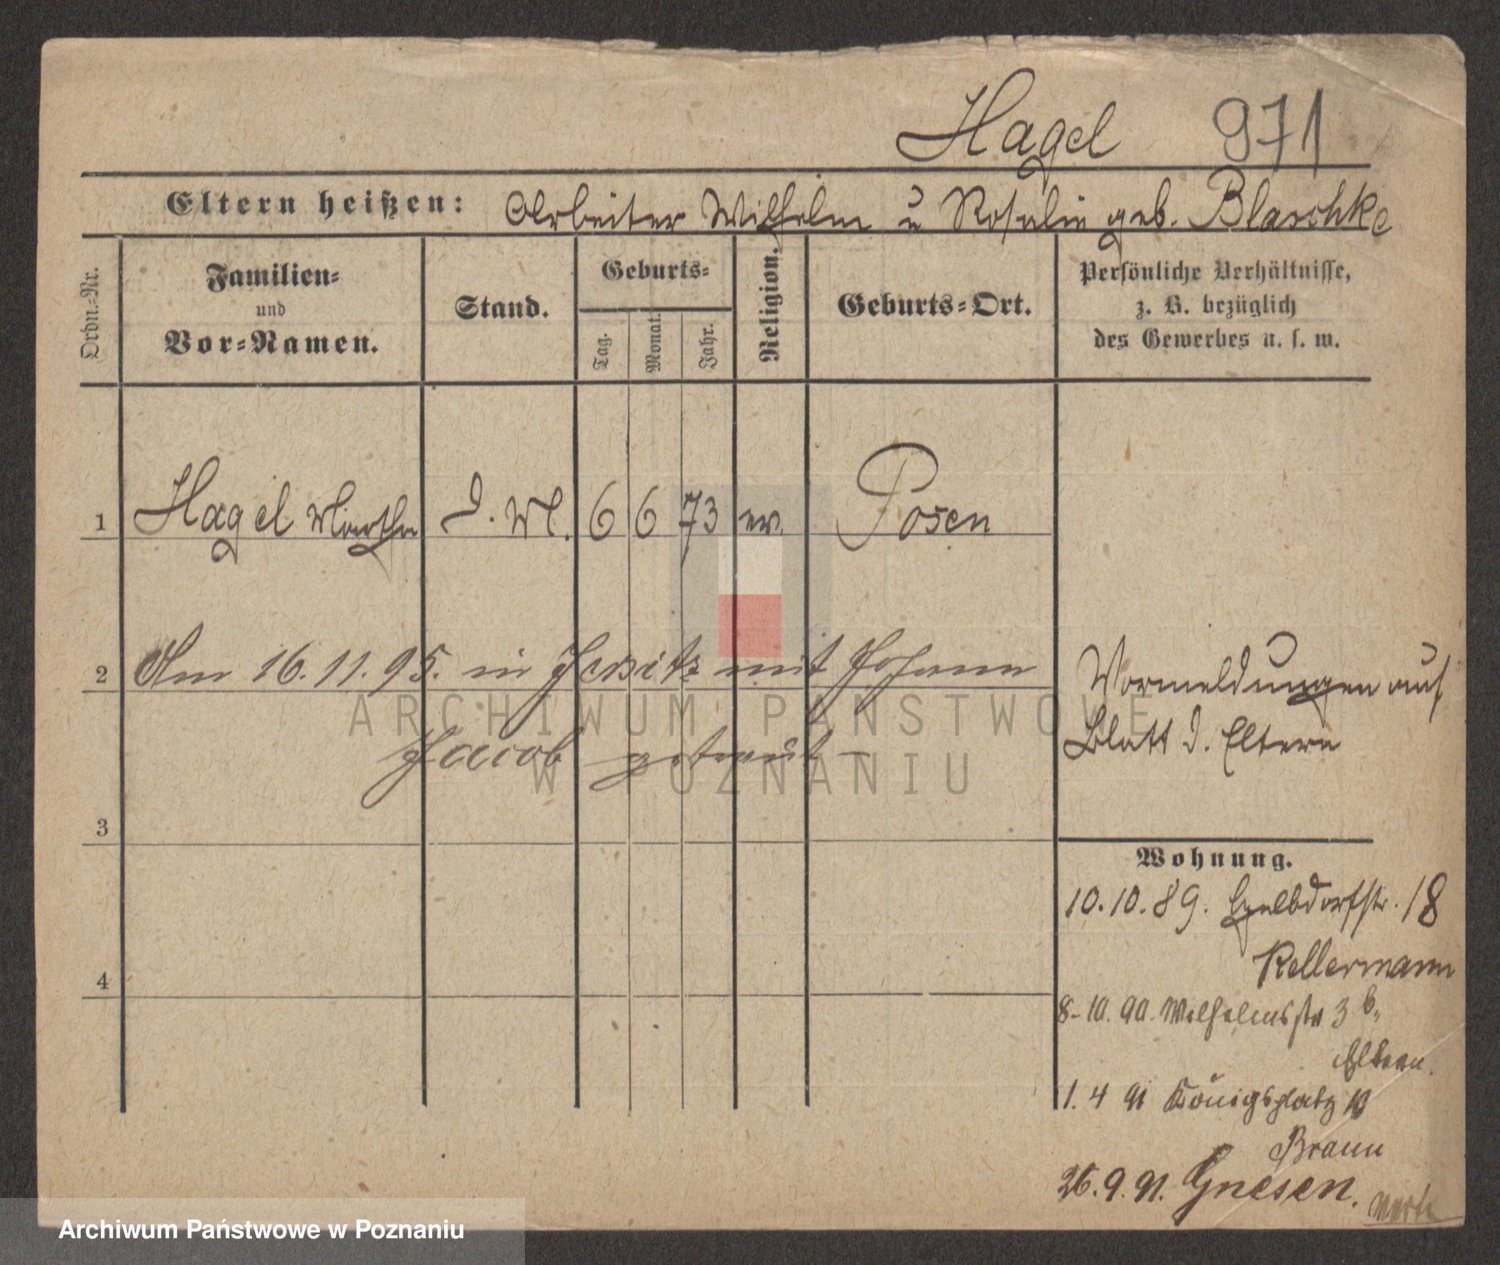 Hagel 971
Eltern heißen: Arbeiter Wilhelm u Rosalie geb. Blaschke
Ordn.-Nr.
Familien-
und
Vor-Namen.
Stand.
Geburts-
Tag.
Monat.
Jahr.
Religion.
Geburts-Ort.
Persönliche Verhältnisse,
z. B. bezüglich
des Gewerbes u. s. w.
1 Hagel Martha d. M. 6 6 73 ev. Posen
2 Am 16.11.95. in Jersitz mit Johann
Jacob getraut –
Vormeldungen auf
Blatt d. Eltern
3
4
Wohnung.
10.10.89. 18
Kellermann
8-10.90. Wilhelmsstr 3b,
Eltern.
1. 4 91 Königsplatz 10
Braun
26.9.91. Gnesen.
ARCHIWUM PAŃSTWOWE
W POZNANIU
Archiwum Państwowe w Poznaniu